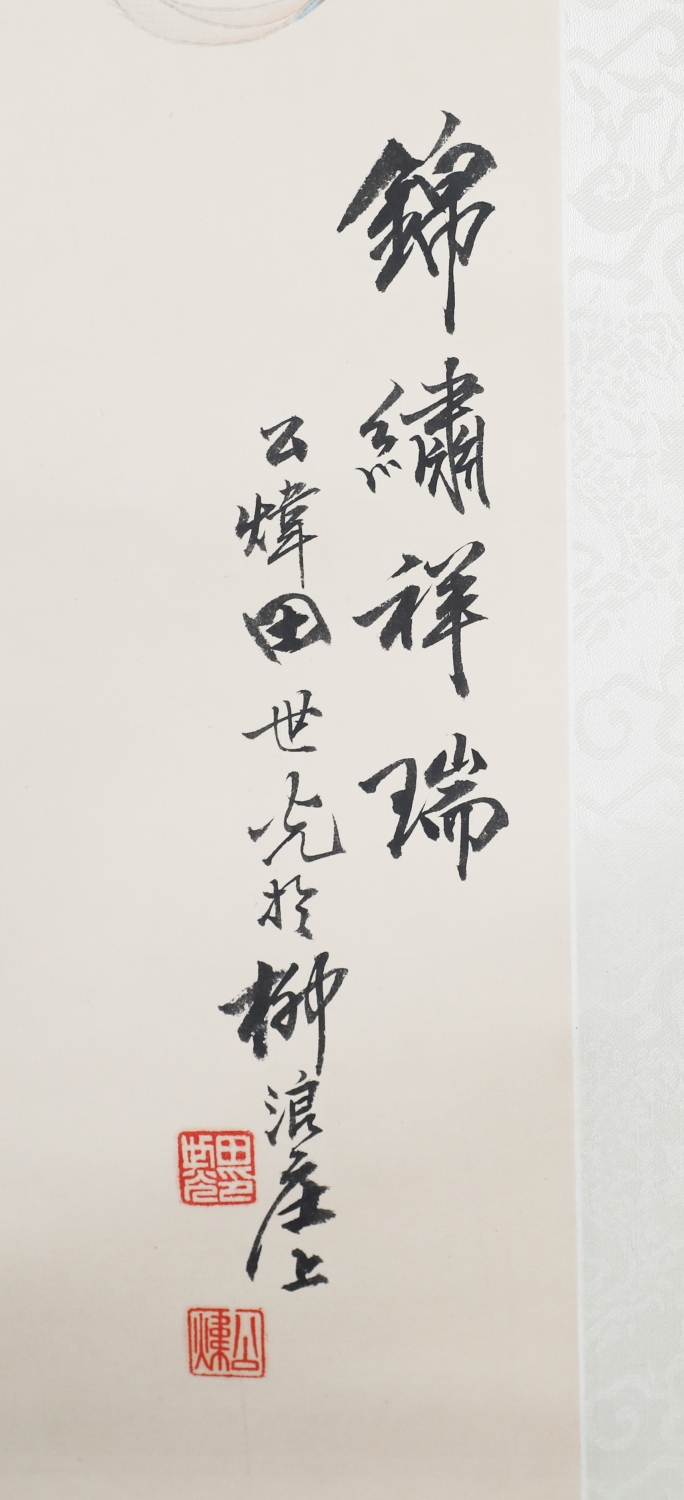 錦繡祥瑞
公煒田世光於柳浪庄上
田世光印
公煒